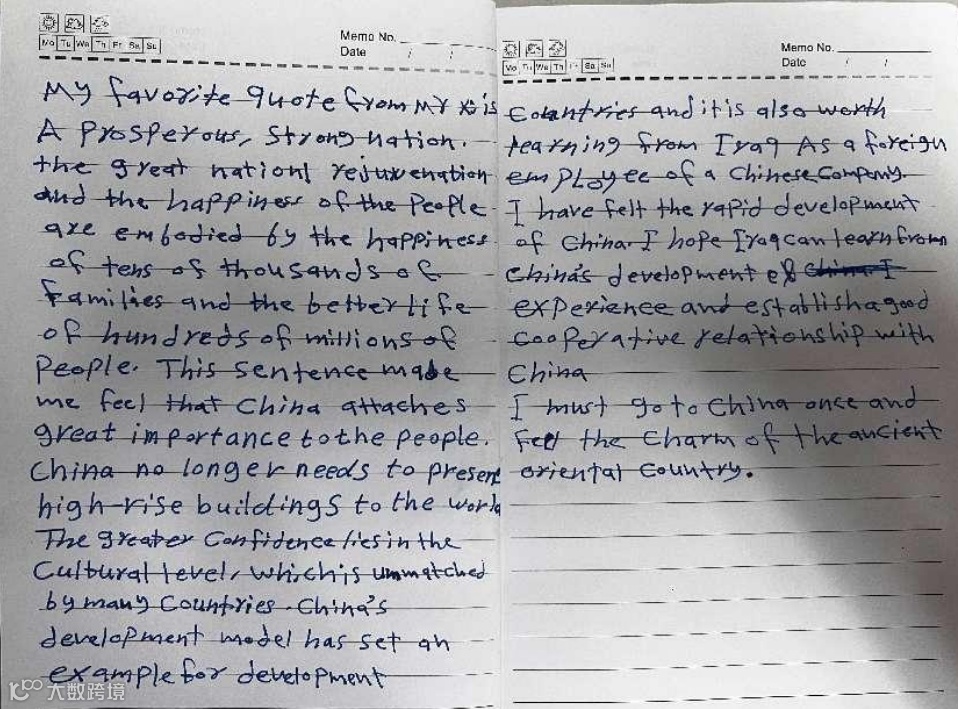 Mo Tu We Th Fr Sa Su
Memo No.
Date / /
My favorite quote from Mr Xi is
A Prosperous, strong nation.
the great nationl rejuvenation
and the happiness of the People
are embodied by the happiness
of tens of thousands of
families and the better life
of hundreds of millions of
People. This sentence made
me feel that China attaches
great importance to the people.
China no longer needs to present
high-rise buildings to the world
The greater Confidence lies in the
Cultural level, which is unmatched
by many Countries. China's
development model has set an
example for development
Mo Tu We Th Fr Sa Su
Memo No.
Date / /
Countries and it is also worth
learning from Iraq As a foreign
employee of a Chinese Company.
I have felt the rapid development
of China. I hope Iraq can learn from
China's development
experience and establish a good
Cooperative relationship with
China
I must go to China once and
Feel the Charm of the ancient
oriental Country.
大数跨境